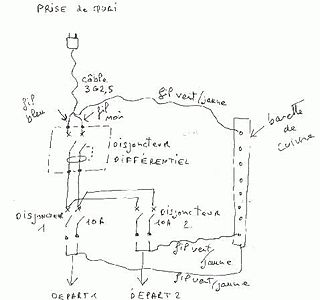 PRISE de
câble
3G2,5
fil vert/jaune
fil
bleu
fil
noir
barette
de
cuivre
DISJONCTEUR
DIFFÉRENTIEL
DISJONCTEUR
1
10A
DISJONCTEUR
10A 2
fil vert
jaune
fil vert/jaune
DEPART 1
DEPART 2